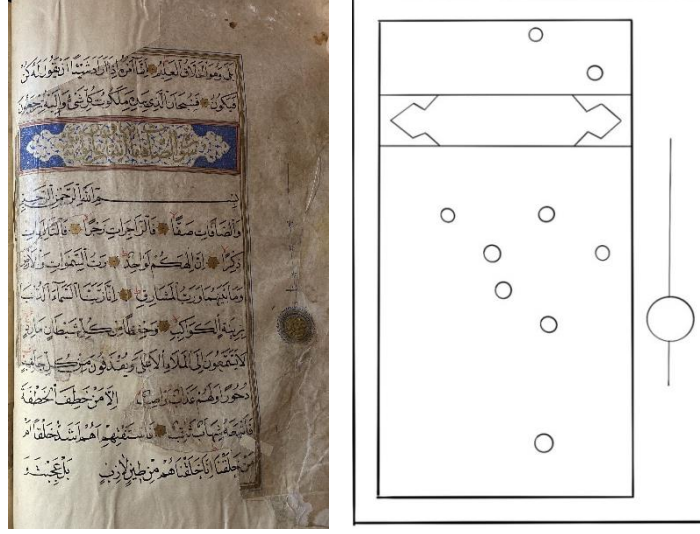 بَلَى وَهُوَ الْخَلَّاقُ الْعَلِيمُ إِنَّمَا أَمْرُهُ إِذَا أَرَادَ شَيْئًا أَنْ يَقُولَ لَهُ كُنْ
فَيَكُونُ فَسُبْحَانَ الَّذِي بِيَدِهِ مَلَكُوتُ كُلِّ شَيْءٍ وَإِلَيْهِ تُرْجَعُونَ
بِسْمِ اللَّهِ الرَّحْمَنِ الرَّحِيمِ
وَالصَّافَّاتِ صَفًّا فَالزَّاجِرَاتِ زَجْرًا فَالتَّالِيَاتِ
ذِكْرًا إِنَّ إِلَهَكُمْ لَوَاحِدٌ رَبُّ السَّمَوَاتِ وَالْأَرْضِ
وَمَا بَيْنَهُمَا وَرَبُّ الْمَشَارِقِ إِنَّا زَيَّنَّا السَّمَاءَ الدُّنْيَا
بِزِينَةٍ الْكَوَاكِبِ وَحِفْظًا مِنْ كُلِّ شَيْطَانٍ مَارِدٍ
لَا يَسَّمَّعُونَ إِلَى الْمَلَإِ الْأَعْلَى وَيُقْذَفُونَ مِنْ كُلِّ جَانِبٍ
دُحُورًا وَلَهُمْ عَذَابٌ وَاصِبٌ إِلَّا مَنْ خَطِفَ الْخَطْفَةَ
فَأَتْبَعَهُ شِهَابٌ ثَاقِبٌ فَاسْتَفْتِهِمْ أَهُمْ أَشَدُّ خَلْقًا أَمْ
مَنْ خَلَقْنَا إِنَّا خَلَقْنَاهُمْ مِنْ طِينٍ لَازِبٍ بَلْ عَجِبْتَ